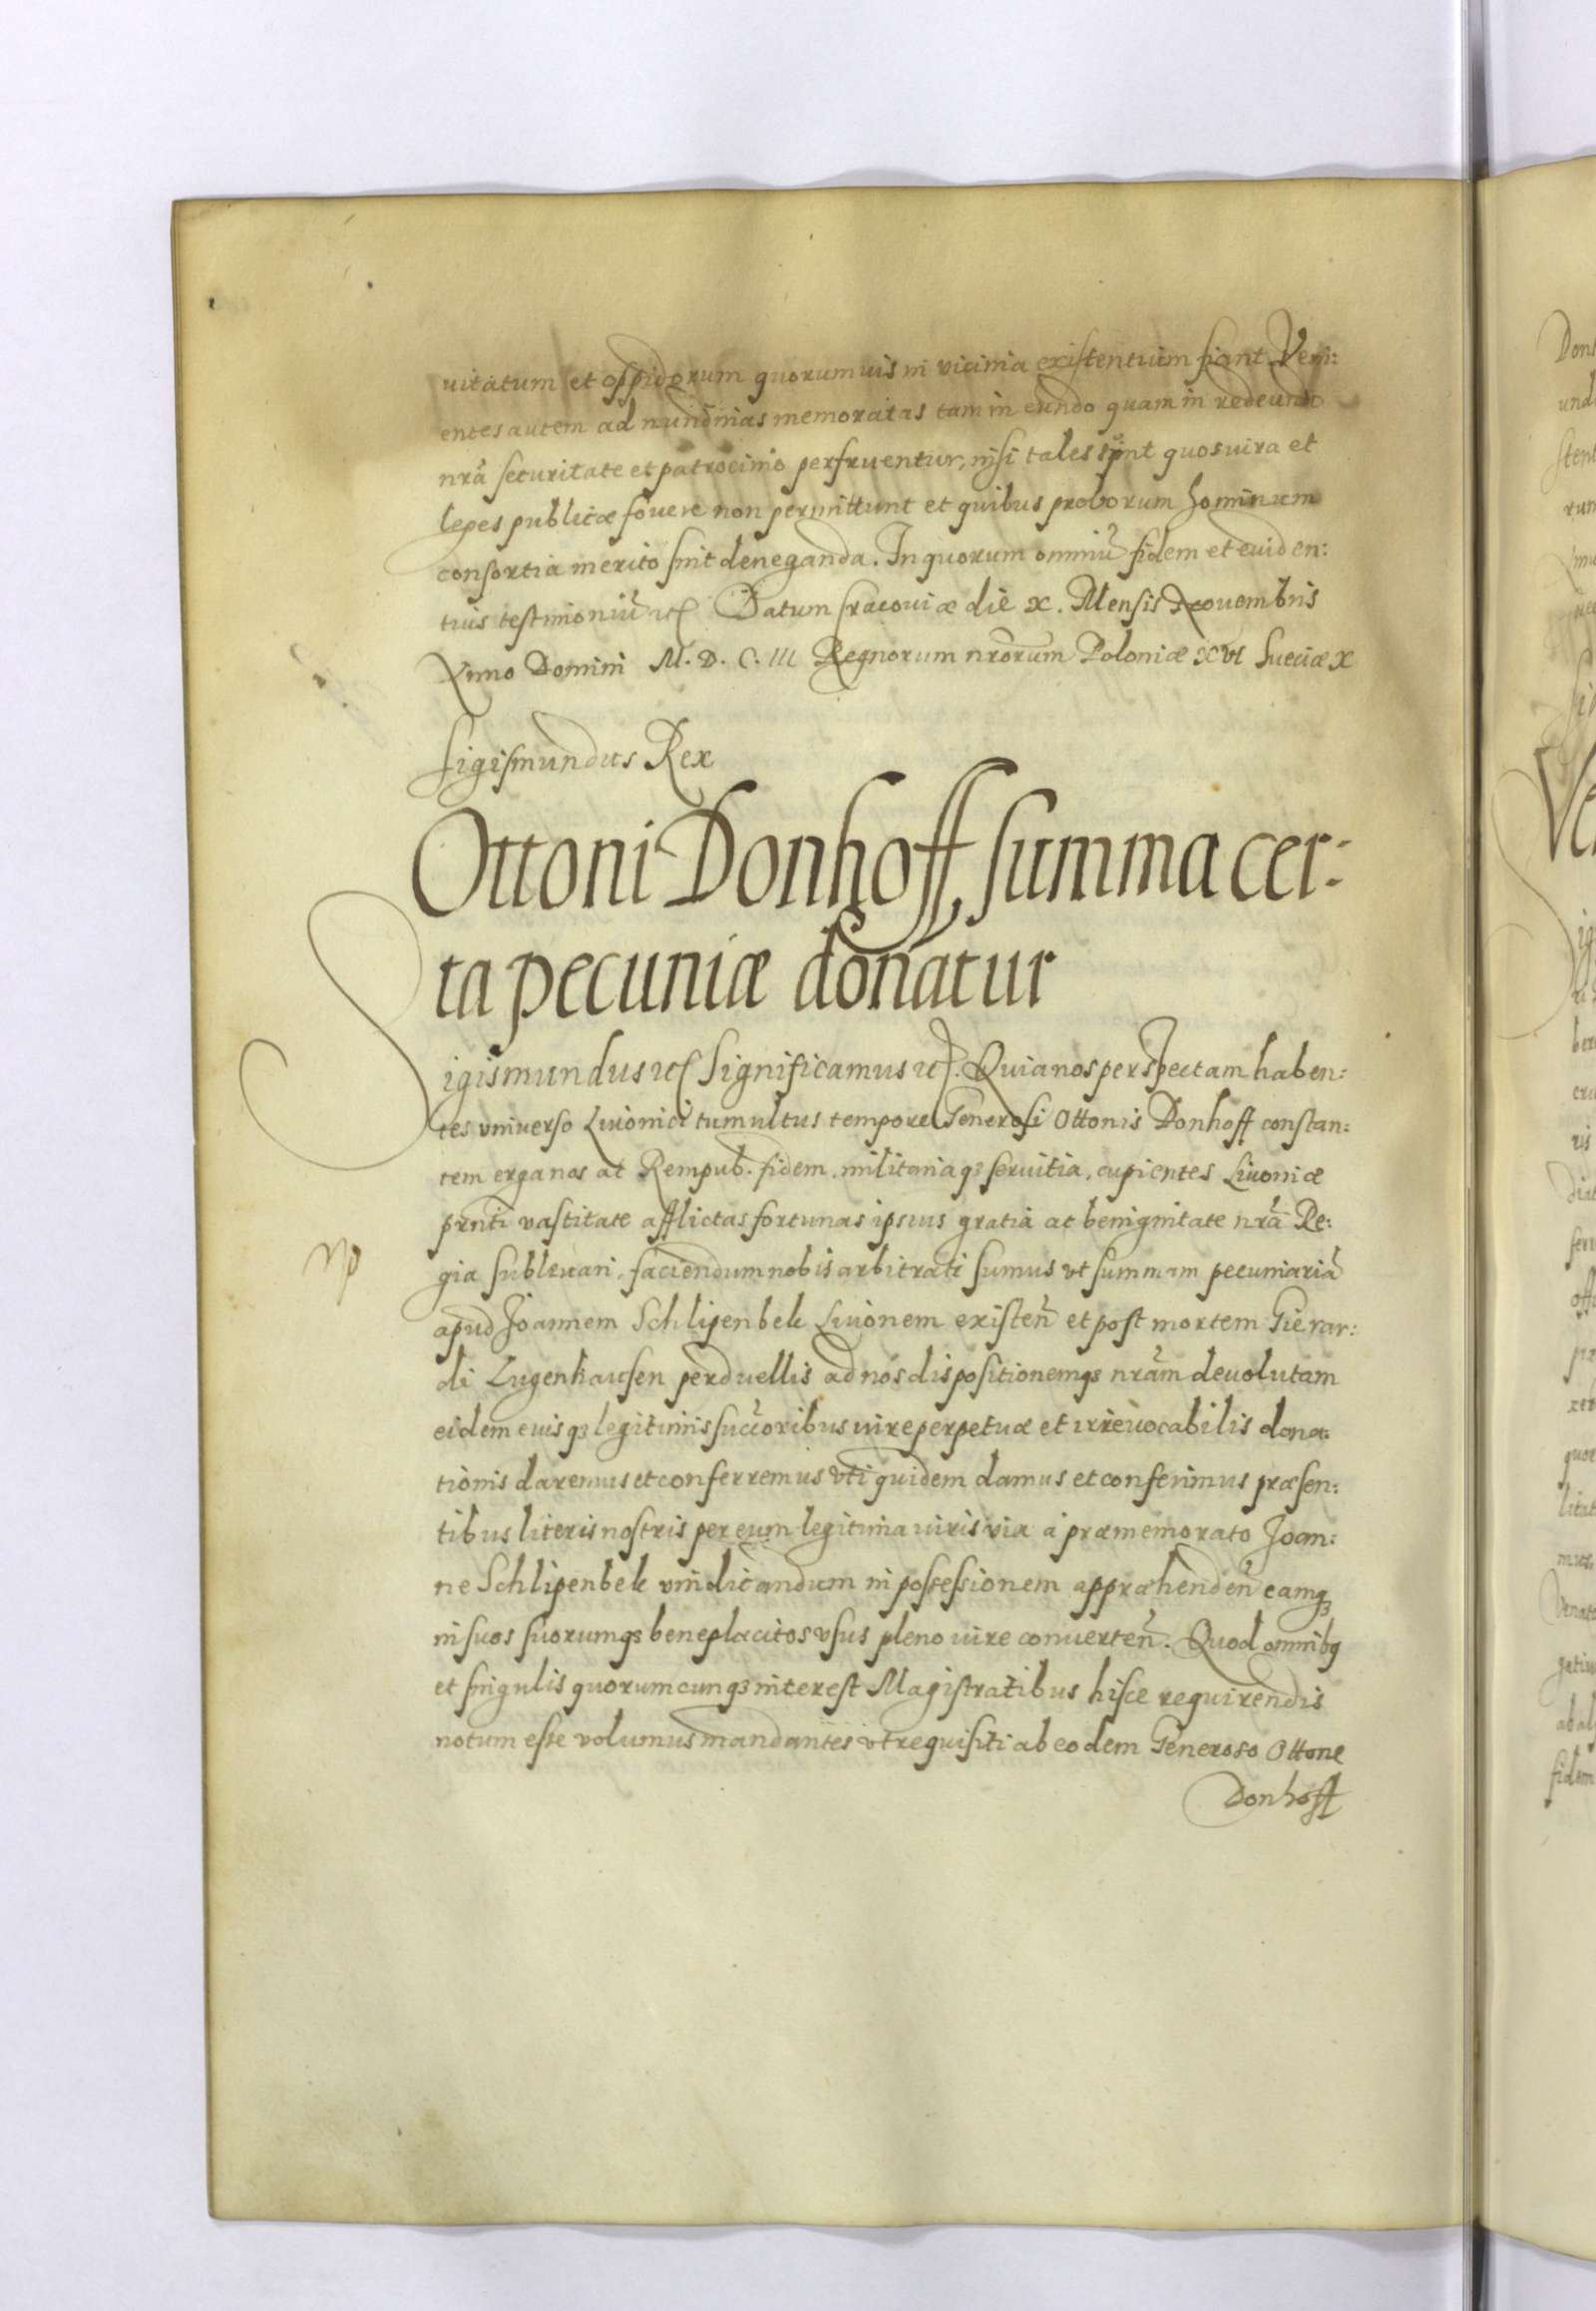 uitatum et oppidorum quorumuis in vicinia existentium fiant. Veni:
entes autem ad nundinas memoratas tam in eundo quam in redeundo
nr̃a securitate et patrocinio perfruentur, nisi tales sint quos iura et
leges publicæ fouere non permittunt et quibus proborum hominum
consortia merito sint deneganda. In quorum omniũ fidem et euiden:
tius testimoniũ etc Datum Cracouiæ die X. Mensis Nouembris
Anno Domini M. D. C. III Regnorum nrorum Poloniæ XVI Sueciæ X
Sigismundus Rex
Ottoni Donhoff, summa cer:
ta pecuniæ donatur
Sigismundus etc Significamus etc. Quia nos perspectam haben:
tes vniuerso Liuonici tumultus tempore Generosi Ottonis Donhoff constan:
tem erga nos ac Rempub. fidem, militariaq; seruitia, cupientes Liuoniæ
prnti vastitate afflictas fortunas ipsius gratia ac benignitate nr̃a Re:
gia subleuari, faciendum nobis arbitrati sumus vt summam pecuniariã
apud Joannem Schlipenbek Liuonem existeñ et post mortem Gierar:
di Zugenhausen perduellis ad nos dispositionemq; nrãm deuolutam
eidem euisq; legitimis succoribus iure perpetuæ et irreuocabilis dona:
tionis daremus et conferremus vti quidem damus et conferimus præsen:
tibus literis nostris per eum legitima iuris via a præmemorato Joan:
ne Schlipenbek vindicandum in possessionem appræhendeñ eamq;
in suos suorumq; beneplacitos vsus pleno iure conuerteñ. Quod omnibq
et singulis quorumcunq; interest Magistratibus hisce requirendis
notum esse volumus mandantes vt requisiti ab eodem Generoso Ottone
Donhoff